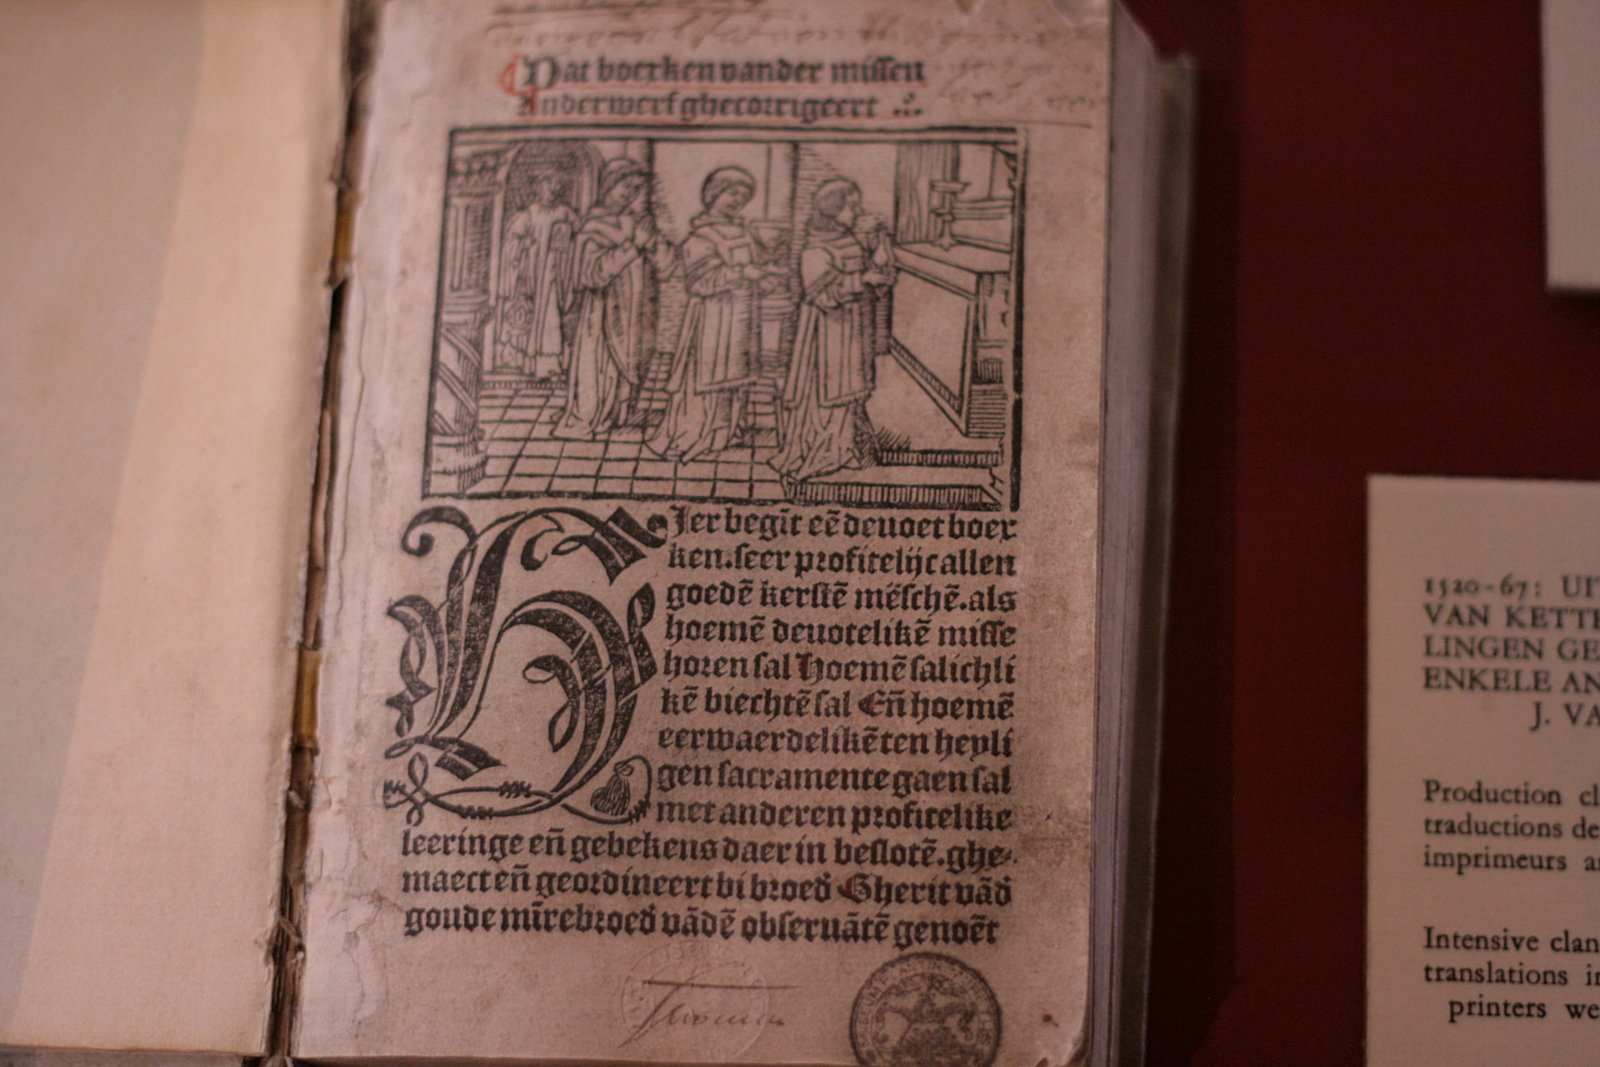 Dat boexken vander missen
Anderwerf ghecorrigeert
Hier begīt eē deuoet boex
ken. seer profitelijc allen
goedē kerstē mēschē. als
hoemē deuotelikē misse
horen sal Hoemē salichli
kē biechtē sal Eñ hoemē
eerwaerdelikē ten heyli
gen sacramente gaen sal
met anderen profitelike
leeringe eñ gebekens daer in beslotē. ghe-
maect eñ geordineert bi broed Gherit vād
goude mīrebroed vādē obseruātē genoēt
1520-67: UI
VAN KETTE
LINGEN GE
ENKELE AN
J. VA
Production cl
traductions de
imprimeurs a
Intensive clan
translations i
printers we